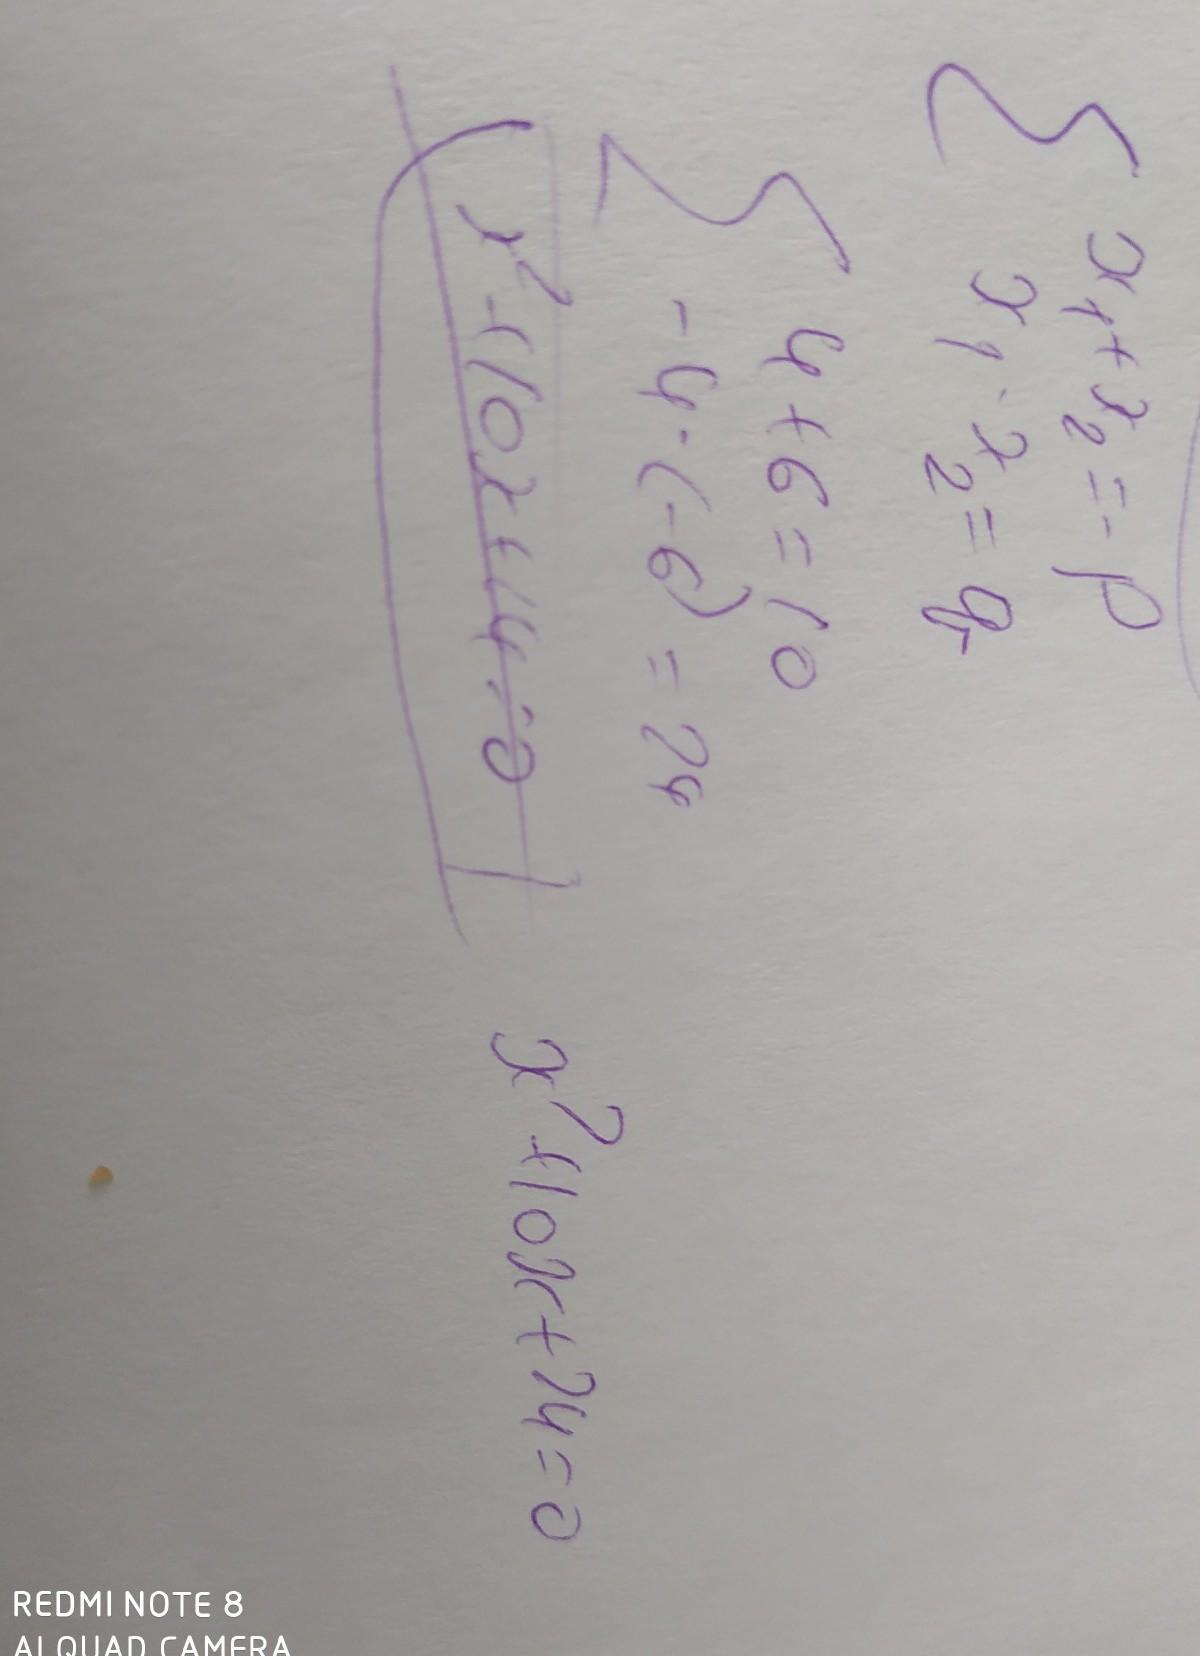 x₁ + x₂ = -p
x₁ · x₂ = q
4 + 6 = 10
-4 · (-6) = 24
x² + 10x + 14 = 0
x² + 10x + 24 = 0
REDMI NOTE 8
AI QUAD CAMERA